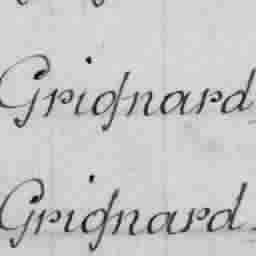 Grignard
Grignard.